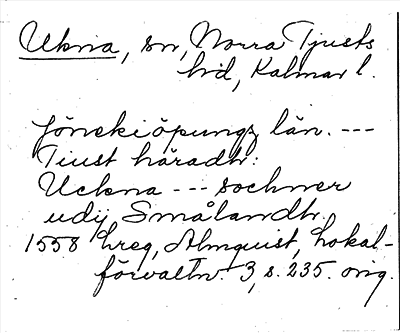 Ukna, sn, Norra Tjusts
hd, Kalmar l.
Jönekiöpungz län. ---
Tiust häradh:
Uckna --- sochner
udij Smålandh.
1558 hreg, Almquist, Lokal-
förvaltn. 3, s. 235. orig.